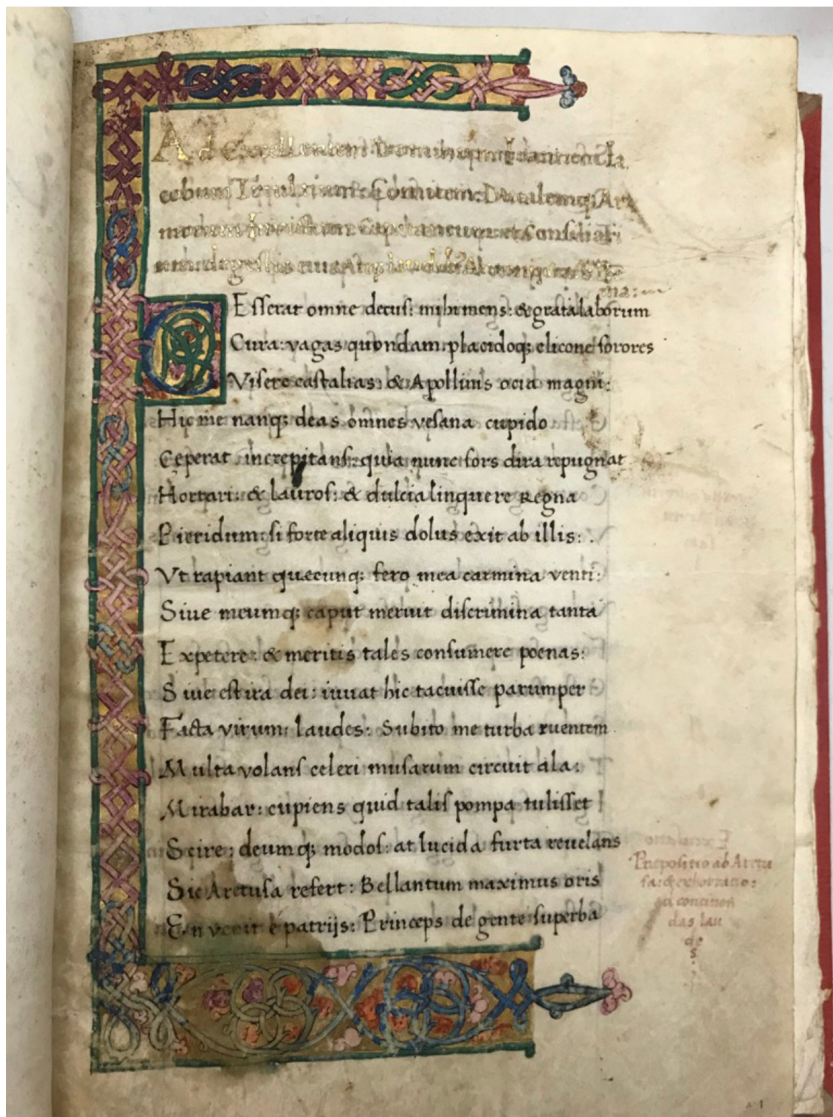 Ad Excellentem Dominum
Comitem: Ducalemq; Ar
Capitaneum et Consiliari
Esserat omne decus: mihi mens: & grata laborum
Cura: vagas quondam placidoq; elicone sorores
Visere castalias: & Apollinis ocia magni:
Hic me nanq; deas omnes vesana cupido
Ceperat increpitans: quia nunc sors dira repugnat
Hortari: & lauros: & dulcia linquere Regna
Pieridum: si forte aliquis dolus exit ab illis:
Vt rapiant quęcunq; fero mea carmina venti:
Siue meumq; caput meruit discrimina tanta
Expetere: & meritis tales consumere poenas:
Siue est ira dei: iuuat hic tacuisse parumper
Facta virum: laudes: Subito me turba ruentem
Multa volans celeri musarum circuit ala:
Mirabar: cupiens quid talis pompa tulisset
Scire: deumq; modos: at lucida furta reuelans
Sic Aretusa refert: Bellantum maximus oris
En venit é patrijs: Princeps de gente superba
Propositio ab Aretu
sa: & exhortatio:
ad canen
das lau
de
s